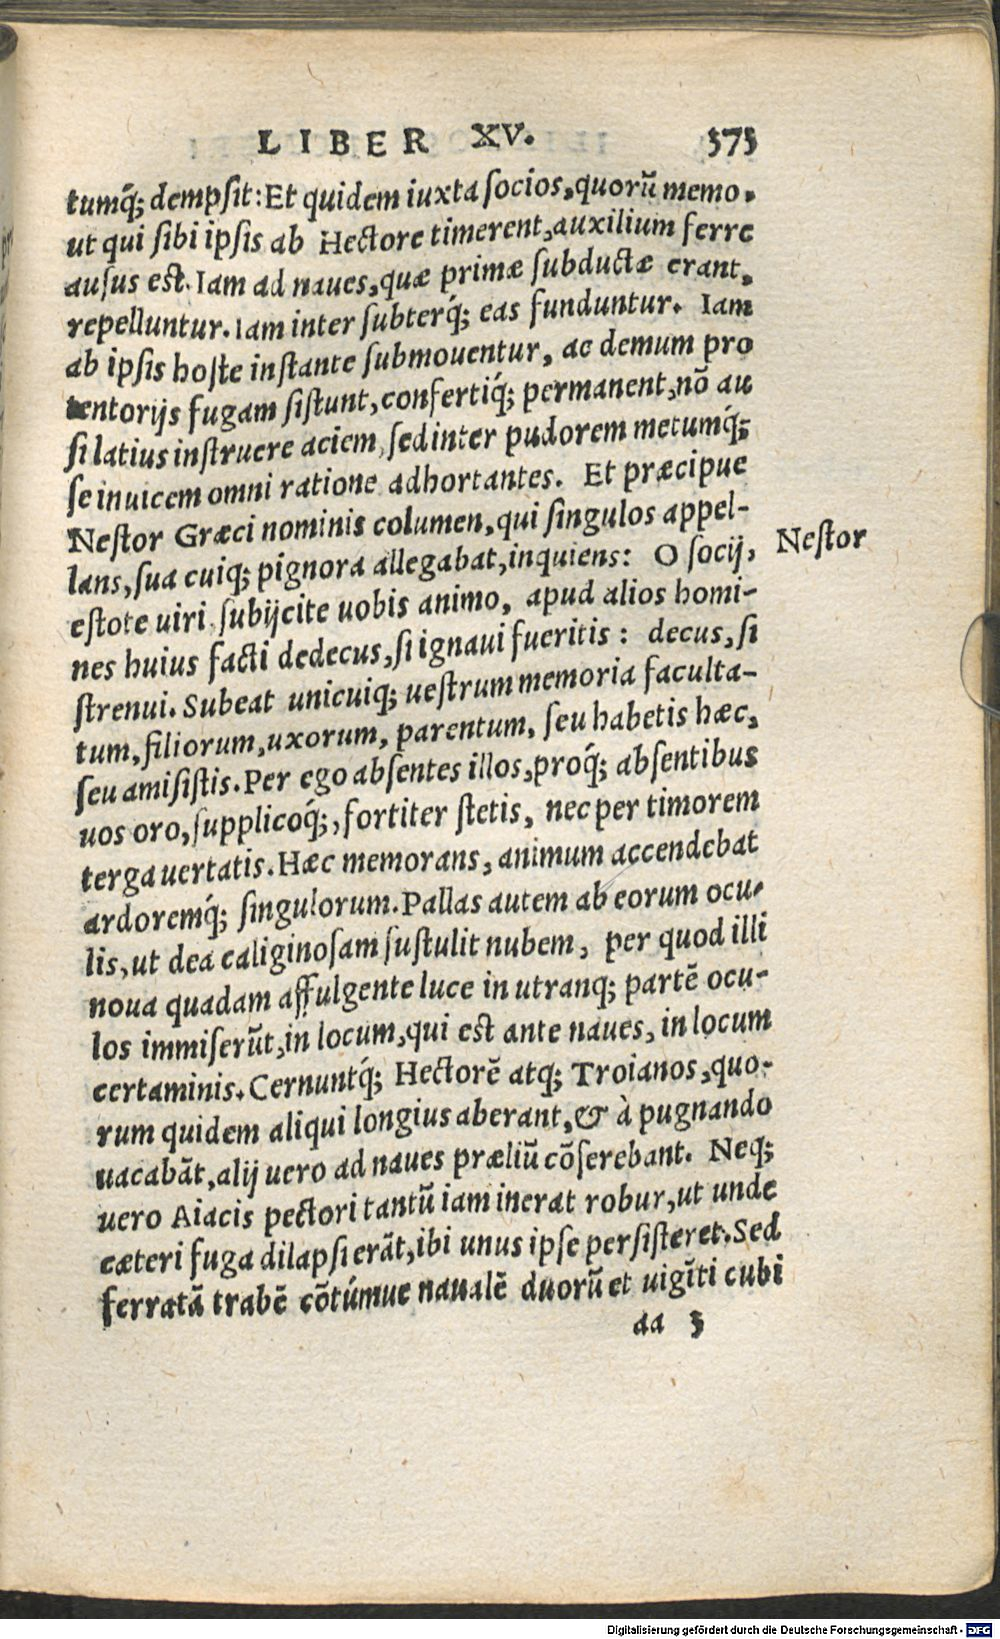 LIBER XV. 373
tumq́; dempsit: Et quidem iuxta socios, quorū memo.
ut qui sibi ipsis ab Hectore timerent, auxilium ferre
ausus est. Iam ad naues, quæ primæ subductæ erant,
repelluntur. Iam inter subterq́; eas funduntur. Iam
ab ipsis hoste instante submouentur, ac demum pro
tentorijs fugam sistunt, confertiq́; permanent, nō au
si latius instruere aciem, sed inter pudorem metumq́;
se inuicem omni ratione adhortantes. Et præcipue
Nestor Græci nominis columen, qui singulos appel-
lans, sua cuiq; pignora allegabat, inquiens: O socij,
Nestor
estote uiri subijcite uobis animo, apud alios homi-
nes huius facti dedecus, si ignaui fueritis: decus, si
strenui. Subeat unicuiq; uestrum memoria faculta-
tum, filiorum, uxorum, parentum, seu habetis hæc,
seu amisistis. Per ego absentes illos, proq́; absentibus
uos oro, supplicoq́;, fortiter stetis, nec per timorem
terga uertatis. Hæc memorans, animum accendebat
ardoremq́; singulorum. Pallas autem ab eorum ocu-
lis, ut dea caliginosam sustulit nubem, per quod illi
noua quadam affulgente luce in utranq; partē ocu-
los immiserūt, in locum, qui est ante naues, in locum
certaminis. Cernuntq́; Hectorē atq; Troianos, quo-
rum quidem aliqui longius aberant, & à pugnando
uacabāt, alij uero ad naues præliū cōserebant. Neq;
uero Aiacis pectori tantū iam inerat robur, ut unde
cæteri fuga dilapsi erāt, ibi unus ipse persisteret. Sed
ferratā trabē cōtúmue naualē duorū et uigīti cubi
aa 3
Digitalisierung gefördert durch die Deutsche Forschungsgemeinschaft - DFG